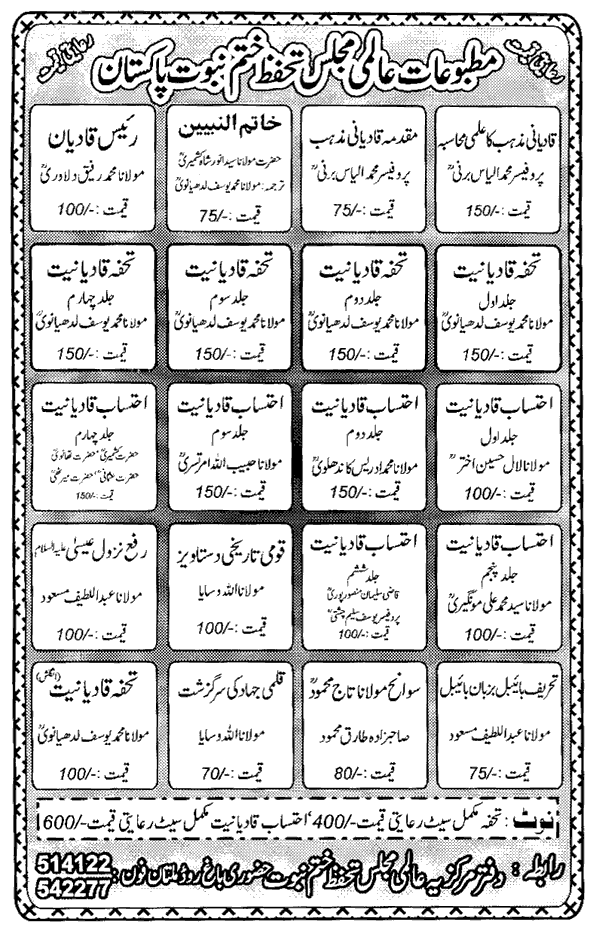 رعایتی قیمت
مطبوعات عالمی مجلس تحفظ ختم نبوت پاکستان
رعایتی قیمت
قادیانی مذہب کا علمی محاسبہ
پروفیسر محمد الیاس برنیؒ
قیمت :-/150
مقدمہ قادیانی مذہب
پروفیسر محمد الیاس برنیؒ
قیمت :-/75
خاتم النبیین
حضرت مولانا سید انور شاہ کشمیریؒ
ترجمہ: مولانا محمد یوسف لدھیانویؒ
قیمت :-/75
رئیس قادیان
مولانا محمد رفیق دلاوریؒ
قیمت :-/100
تحفہ قادیانیت
جلد اول
مولانا محمد یوسف لدھیانویؒ
قیمت :-/150
تحفہ قادیانیت
جلد دوم
مولانا محمد یوسف لدھیانویؒ
قیمت :-/150
تحفہ قادیانیت
جلد سوم
مولانا محمد یوسف لدھیانویؒ
قیمت :-/150
تحفہ قادیانیت
جلد چہارم
مولانا محمد یوسف لدھیانویؒ
قیمت :-/150
احتساب قادیانیت
جلد اول
مولانا لال حسین اخترؒ
قیمت :-/100
احتساب قادیانیت
جلد دوم
مولانا محمد ادریس کاندھلویؒ
قیمت :-/150
احتساب قادیانیت
جلد سوم
مولانا حبیب اللہ امرتسریؒ
قیمت :-/150
احتساب قادیانیت
جلد چہارم
حضرت کشمیریؒ، حضرت تھانویؒ
حضرت عثمانیؒ، حضرت میرٹھیؒ
قیمت :-/150
احتساب قادیانیت
جلد پنجم
مولانا سید محمد علی مونگیریؒ
قیمت :-/100
احتساب قادیانیت
جلد ششم
قاضی سلیمان منصورپوریؒ
پروفیسر یوسف سلیم چشتیؒ
قیمت :-/100
قومی تاریخی دستاویز
مولانا اللہ وسایا
قیمت :-/100
رفع نزول عیسیٰ علیہ السلام
مولانا عبداللطیف مسعود
قیمت :-/100
تحریف بائیبل بزبان بائیبل
مولانا عبداللطیف مسعود
قیمت :-/75
سوانح مولانا تاج محمودؒ
صاحبزادہ طارق محمود
قیمت :-/80
قلمی جہاد کی سرگزشت
مولانا اللہ وسایا
قیمت :-/70
تحفہ قادیانیت (انگلش)
مولانا محمد یوسف لدھیانویؒ
قیمت :-/100
نوٹ : تحفہ مکمل سیٹ رعایتی قیمت-/400' احتساب قادیانیت مکمل سیٹ رعایتی قیمت-/600
رابطہ : دفتر مرکزیہ عالمی مجلس تحفظ ختم نبوت حضوری باغ روڈ ملتان فون : 514122
542277